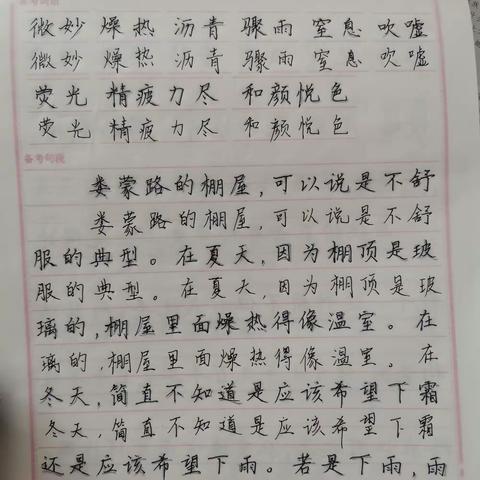 微妙 燥热 沥青 骤雨 窒息 吹嘘
微妙 燥热 沥青 骤雨 窒息 吹嘘
荧光 精疲力尽 和颜悦色
荧光 精疲力尽 和颜悦色
备考句段
娄蒙路的棚屋，可以说是不舒
娄蒙路的棚屋，可以说是不舒
服的典型。在夏天，因为棚顶是玻
服的典型。在夏天，因为棚顶是玻
璃的，棚屋里面燥热得像温室。在
璃的，棚屋里面燥热得像温室。在
冬天，简直不知道是应该希望下霜
冬天，简直不知道是应该希望下霜
还是应该希望下雨。若是下雨，雨